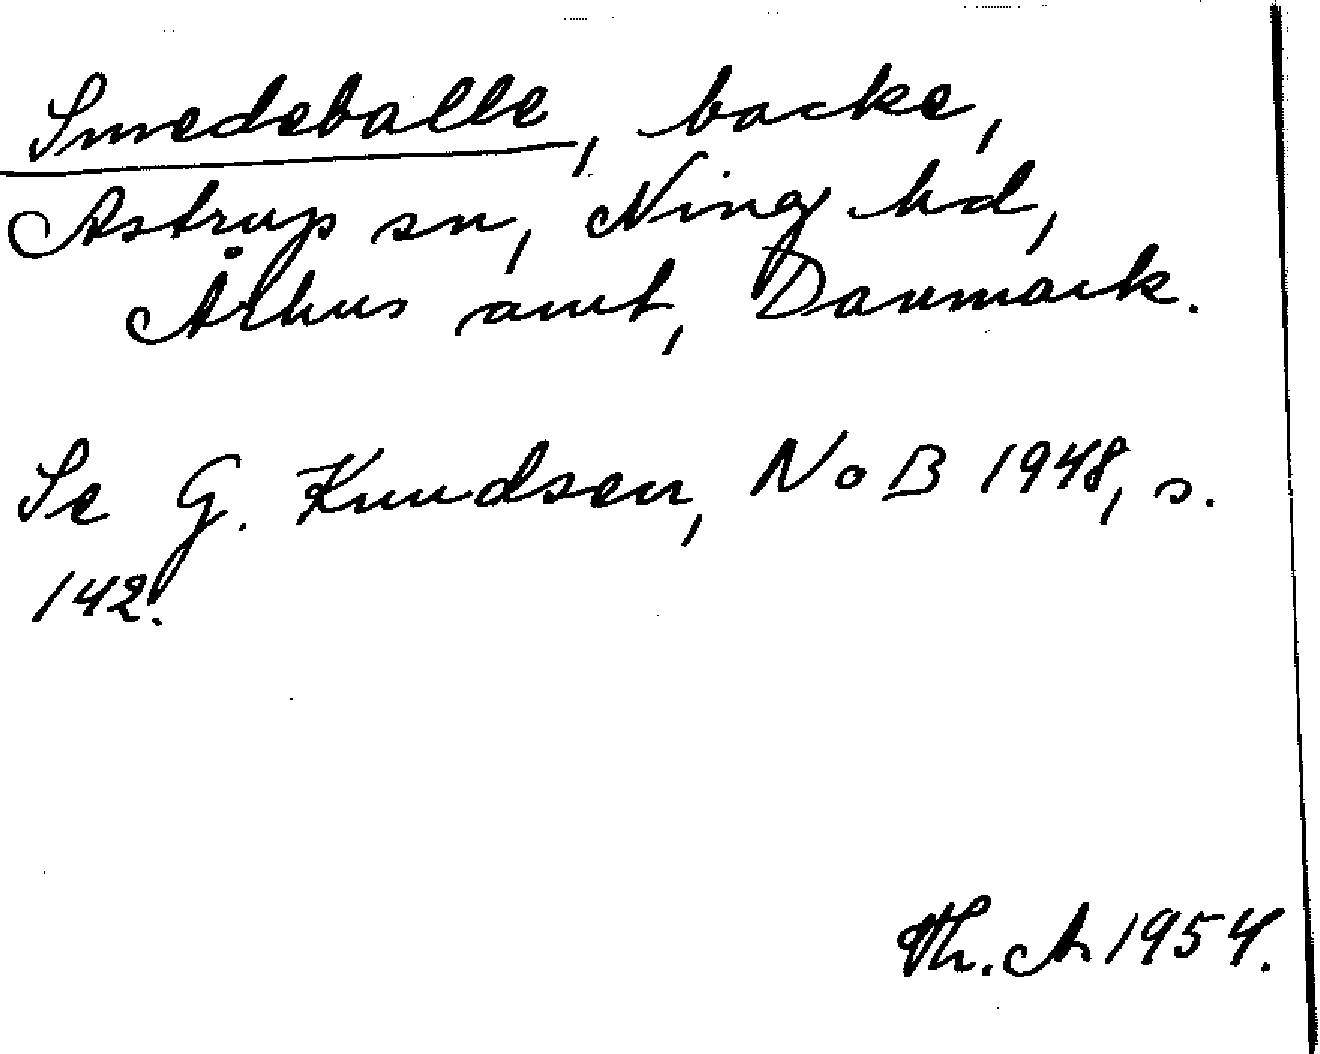 Smedeballe, backe,
Astrup sn, Ning hd,
Århus amt, Danmark.
Se G. Knudsen, NoB 1948, s.
142.
Th. A 1954.